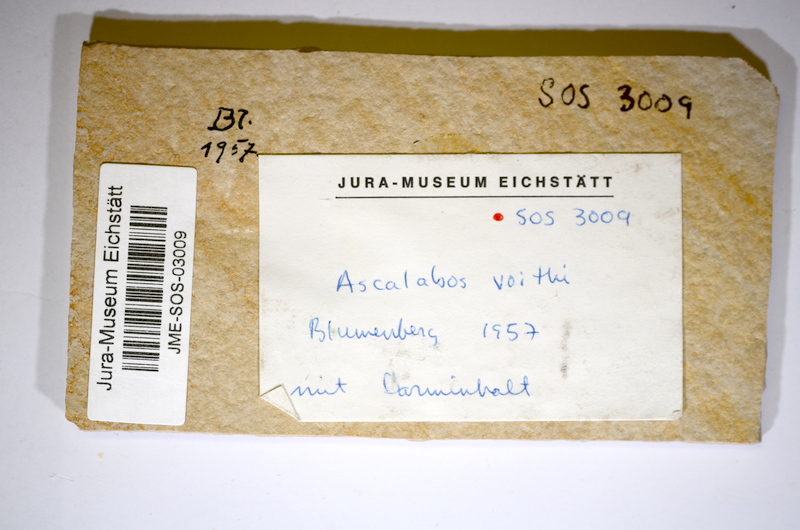 SOS 3009
Bl.
1957
JURA-MUSEUM EICHSTÄTT
SOS 3009
Ascalabos voithi
Blumenberg 1957
mit Darminhalt
Jura-Museum Eichstätt
JME-SOS-03009